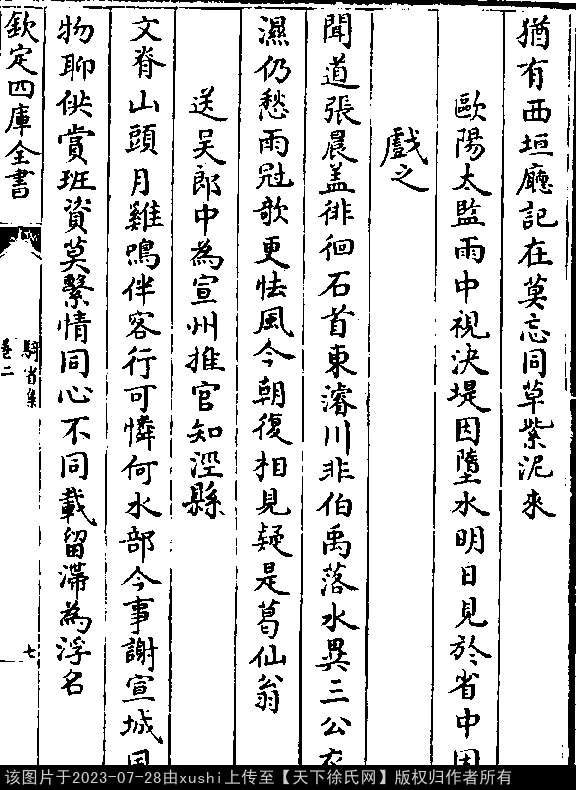 猶有西垣廳記在莫忘同草紫泥來
歐陽太監雨中視決堤因墮水明日見於省中因
戲之
聞道張晨盖徘徊石首東濬川非伯禹落水異三公衣
濕仍愁雨冠欹更怯風今朝復相見疑是葛仙翁
送吴郎中為宣州推官知涇縣
文脊山頭月雞鳴伴客行可憐何水部今事謝宣城風
物聊供賞班資莫繫情同心不同載留滯為浮名
欽定四庫全書
騎省集
卷二
七
该图片于2023-07-28由xushi上传至【天下徐氏网】版权归作者所有